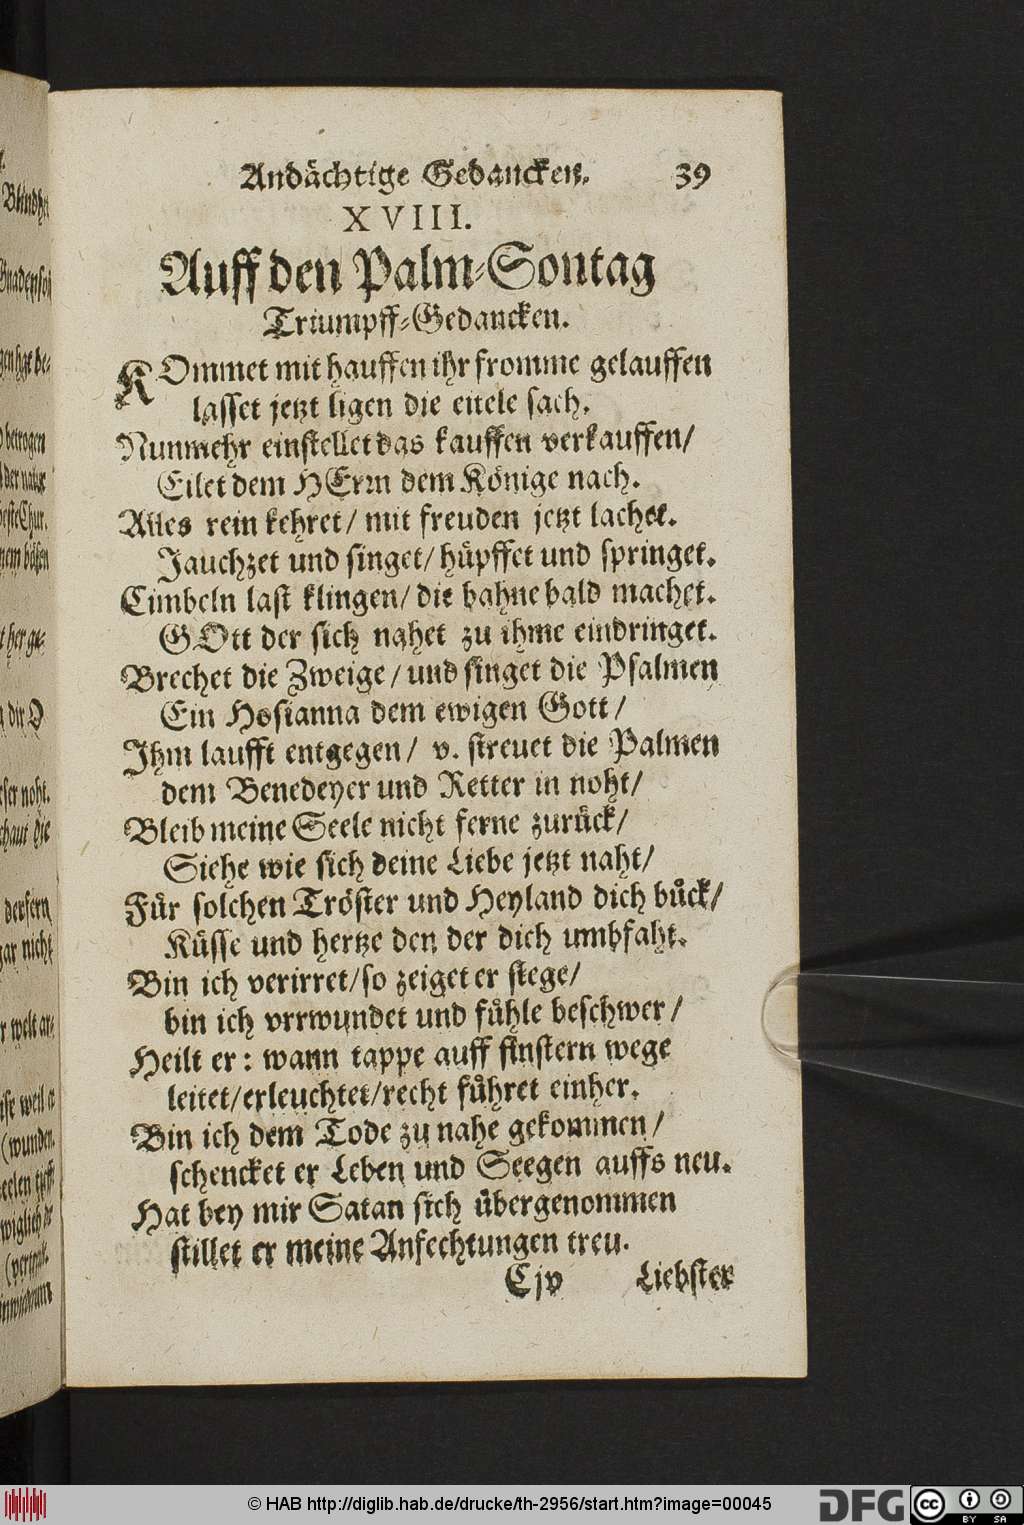 Andächtige Gedancken. 39
XVIII.
Auff den Palm-Sontag
Triumpff-Gedancken.
KOmmet mit hauffen ihr fromme gelauffen
lasset jetzt ligen die eitele sach.
Nunmehr einstellet das kauffen verkauffen/
Eilet dem HErrn dem Könige nach.
Alles rein kehret/ mit freuden jetzt lachet.
Jauchzet und singet/ hüpffet und springet.
Cimbeln last klingen/ die bahne bald machet.
GOtt der sich nahet zu ihme eindringet.
Brechet die Zweige/ und singet die Psalmen
Ein Hosianna dem ewigen Gott/
Ihm laufft entgegen/ v. streuet die Palmen
dem Benedeyer und Retter in noht/
Bleib meine Seele nicht ferne zurück/
Siehe wie sich deine Liebe jetzt naht/
Für solchen Tröster und Heyland dich bück/
Küsse und hertze den der dich umbfaht.
Bin ich verirret/ so zeiget er stege/
bin ich vrrwundet und fühle beschwer/
Heilt er: wann tappe auff finstern wege
leitet/ erleuchtet/ recht führet einher.
Bin ich dem Tode zu nahe gekommen/
schencket er Leben und Seegen auffs neu.
Hat bey mir Satan sich übergenommen
stillet er meine Anfechtungen treu.
Cjv Liebster
© HAB http://diglib.hab.de/drucke/th-2956/start.htm?image=00045
DFG cc BY SA